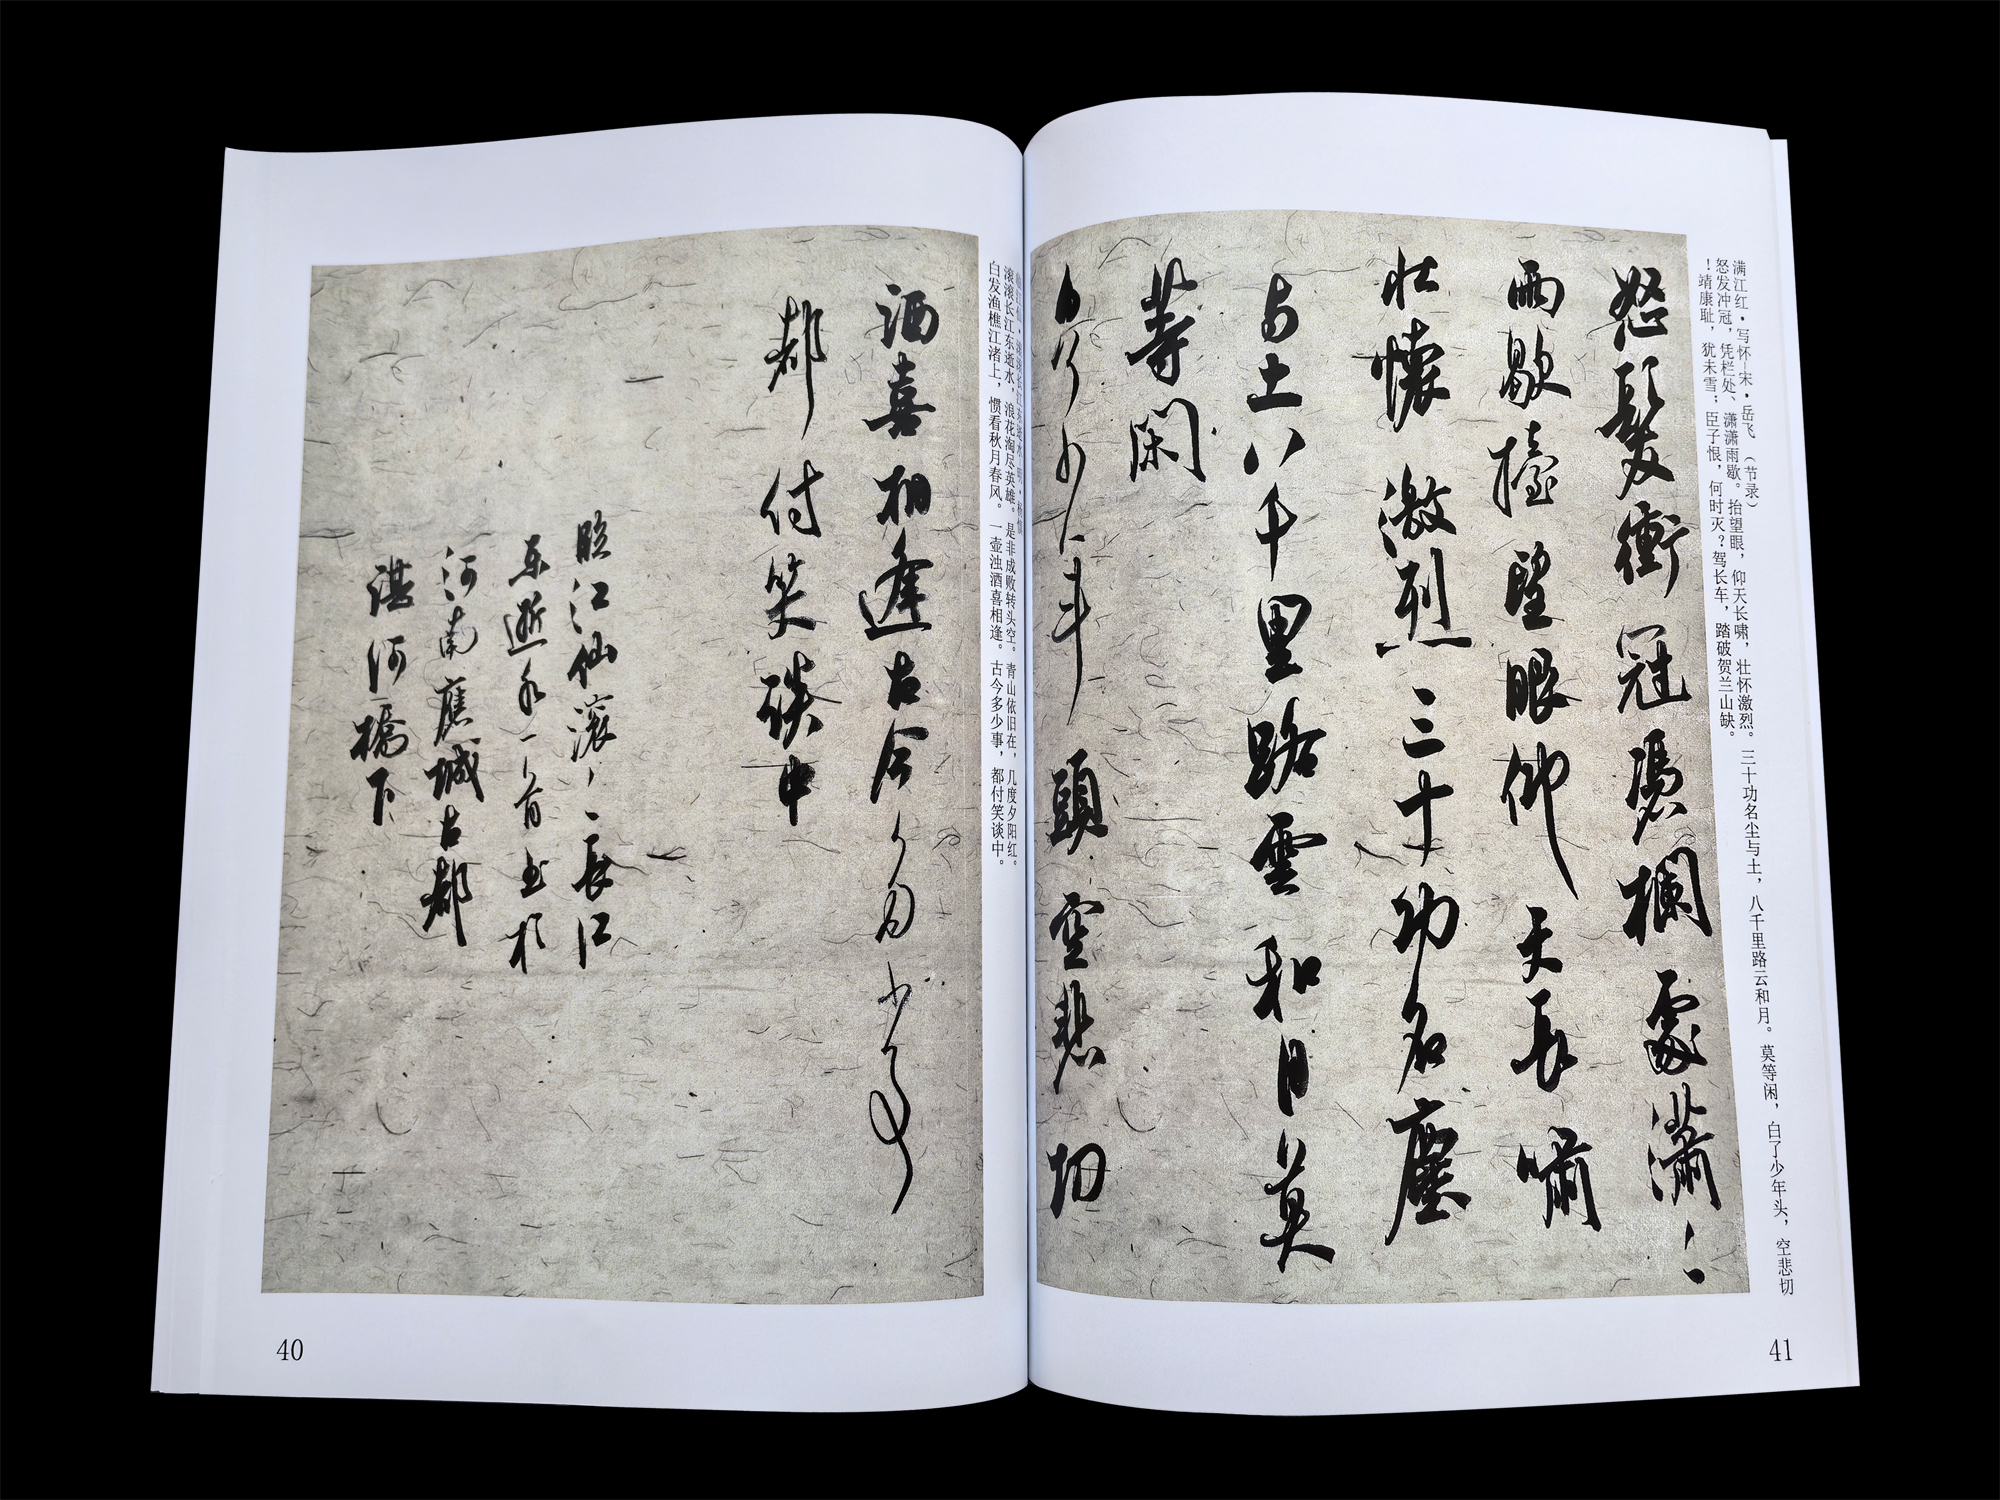 滚滚长江东逝水，浪花淘尽英雄。是非成败转头空。青山依旧在，几度夕阳红。
白发渔樵江渚上，惯看秋月春风。一壶浊酒喜相逢。古今多少事，都付笑谈中。
酒喜相逢古今多少事
都付笑談中
臨江仙滚〻長江
东逝水一首书於
河南應城古都
湛河橋下
40
满江红·写怀—宋·岳飞（节录）
怒发冲冠，凭栏处、潇潇雨歇。抬望眼，仰天长啸，壮怀激烈。三十功名尘与土，八千里路云和月。莫等闲，白了少年头，空悲切
！靖康耻，犹未雪；臣子恨，何时灭？驾长车，踏破贺兰山缺。
怒髮衝冠憑欄處瀟〻
雨歇擡望眼仰天長嘯
壯懷激烈三十功名塵
与土八千里路雲和月莫
等閑
白了少年頭空悲切
41